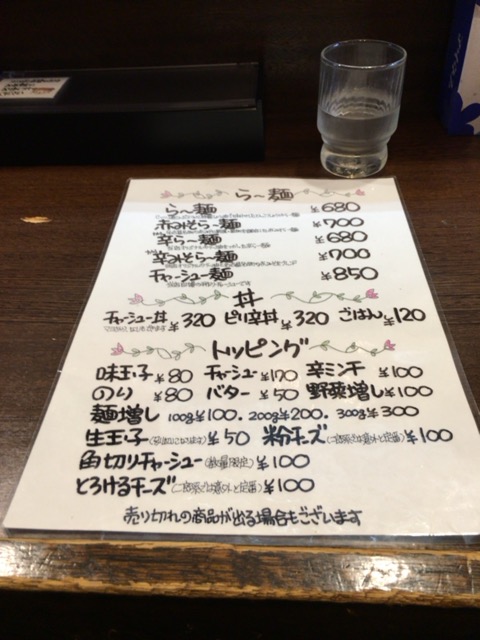 ら〜麺
ら〜麺 ¥680
赤みそら〜麺 ¥700
辛ら〜麺 ¥680
辛みそら〜麺 ¥700
チャーシュー麺 ¥850
丼
チャーシュー丼 ¥320 ピリ辛丼 ¥320 ごはん ¥120
トッピング
味玉子 ¥80 チャーシュー ¥170 辛ミンチ ¥100
のり ¥80 バター ¥50 野菜増し ¥100
麺増し 100g¥100. 200g¥200. 300g¥300
生玉子 ¥50 粉チーズ (二郎系では意外と定番) ¥100
角切りチャーシュー (数量限定) ¥100
とろけるチーズ (二郎系では意外と定番) ¥100
売り切れの商品が出る場合もございます